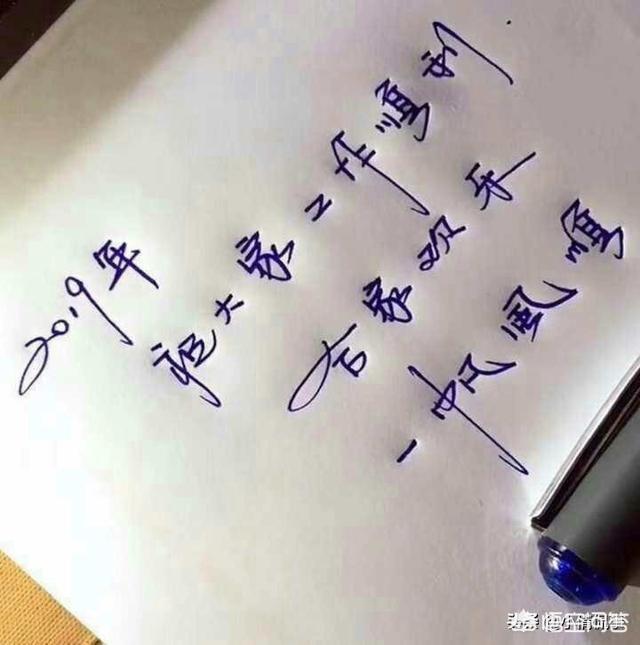 2019年
祝大家工作順利
合家欢乐
一帆風順
悟空问答